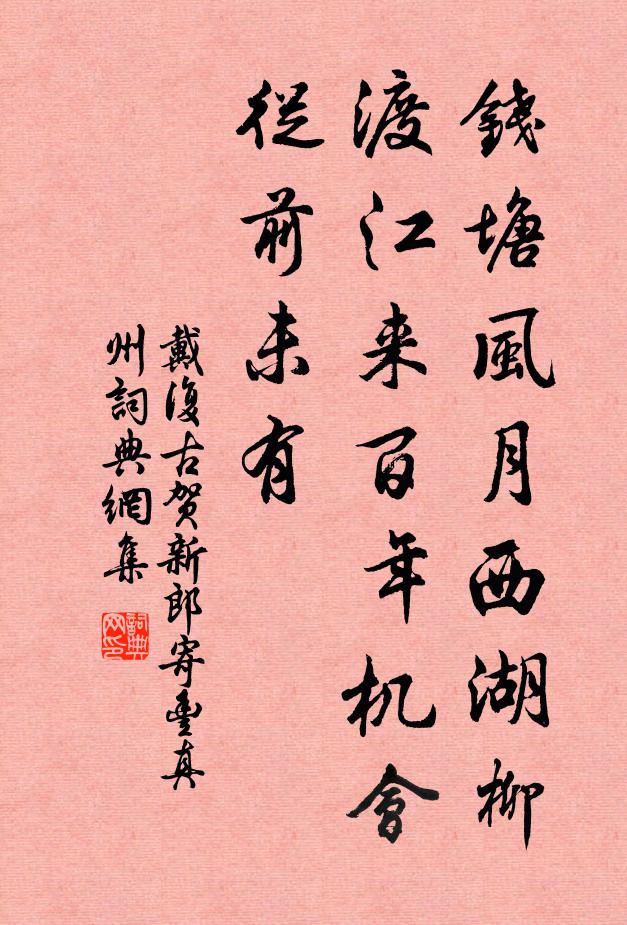 錢塘風月西湖柳
渡江来百年机會
從前未有
戴復古贺新郎寄豊真
州詞典網集
詞典
网印